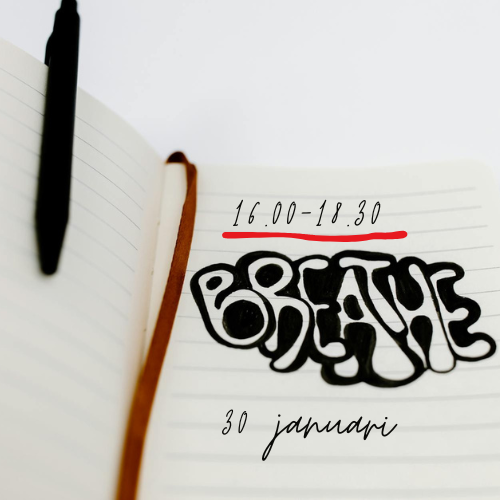 16.00-18.30
BREATHE
30 januari